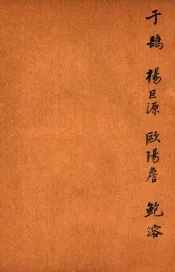 于鵠 楊巨源 歐陽詹 鮑溶